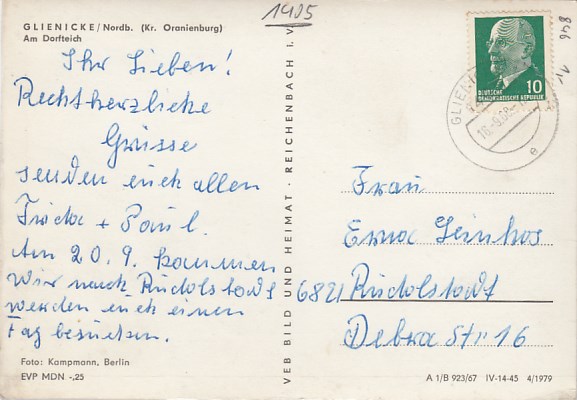 GLIENICKE/Nordb. (Kr. Oranienburg)
Am Dorfteich
1405
Ihr Lieben!
Recht herzliche
Grüsse
senden euch allen
Frieda + Paul.
Am 20. 9. kommen
wir nach Rudolstadt
werden euch einen
Tag besuchen.
Foto: Kampmann, Berlin
EVP MDN -,25
VEB BILD UND HEIMAT · REICHENBACH I. V.
10
DEUTSCHE
DEMOKRATISCHE REPUBLIK
GLIENI
18.-9.68
e
846
1,-
Frau
Erna
6821 Rudolstadt
Debra Str 16
A 1/B 923/67 IV-14-45 4/1979